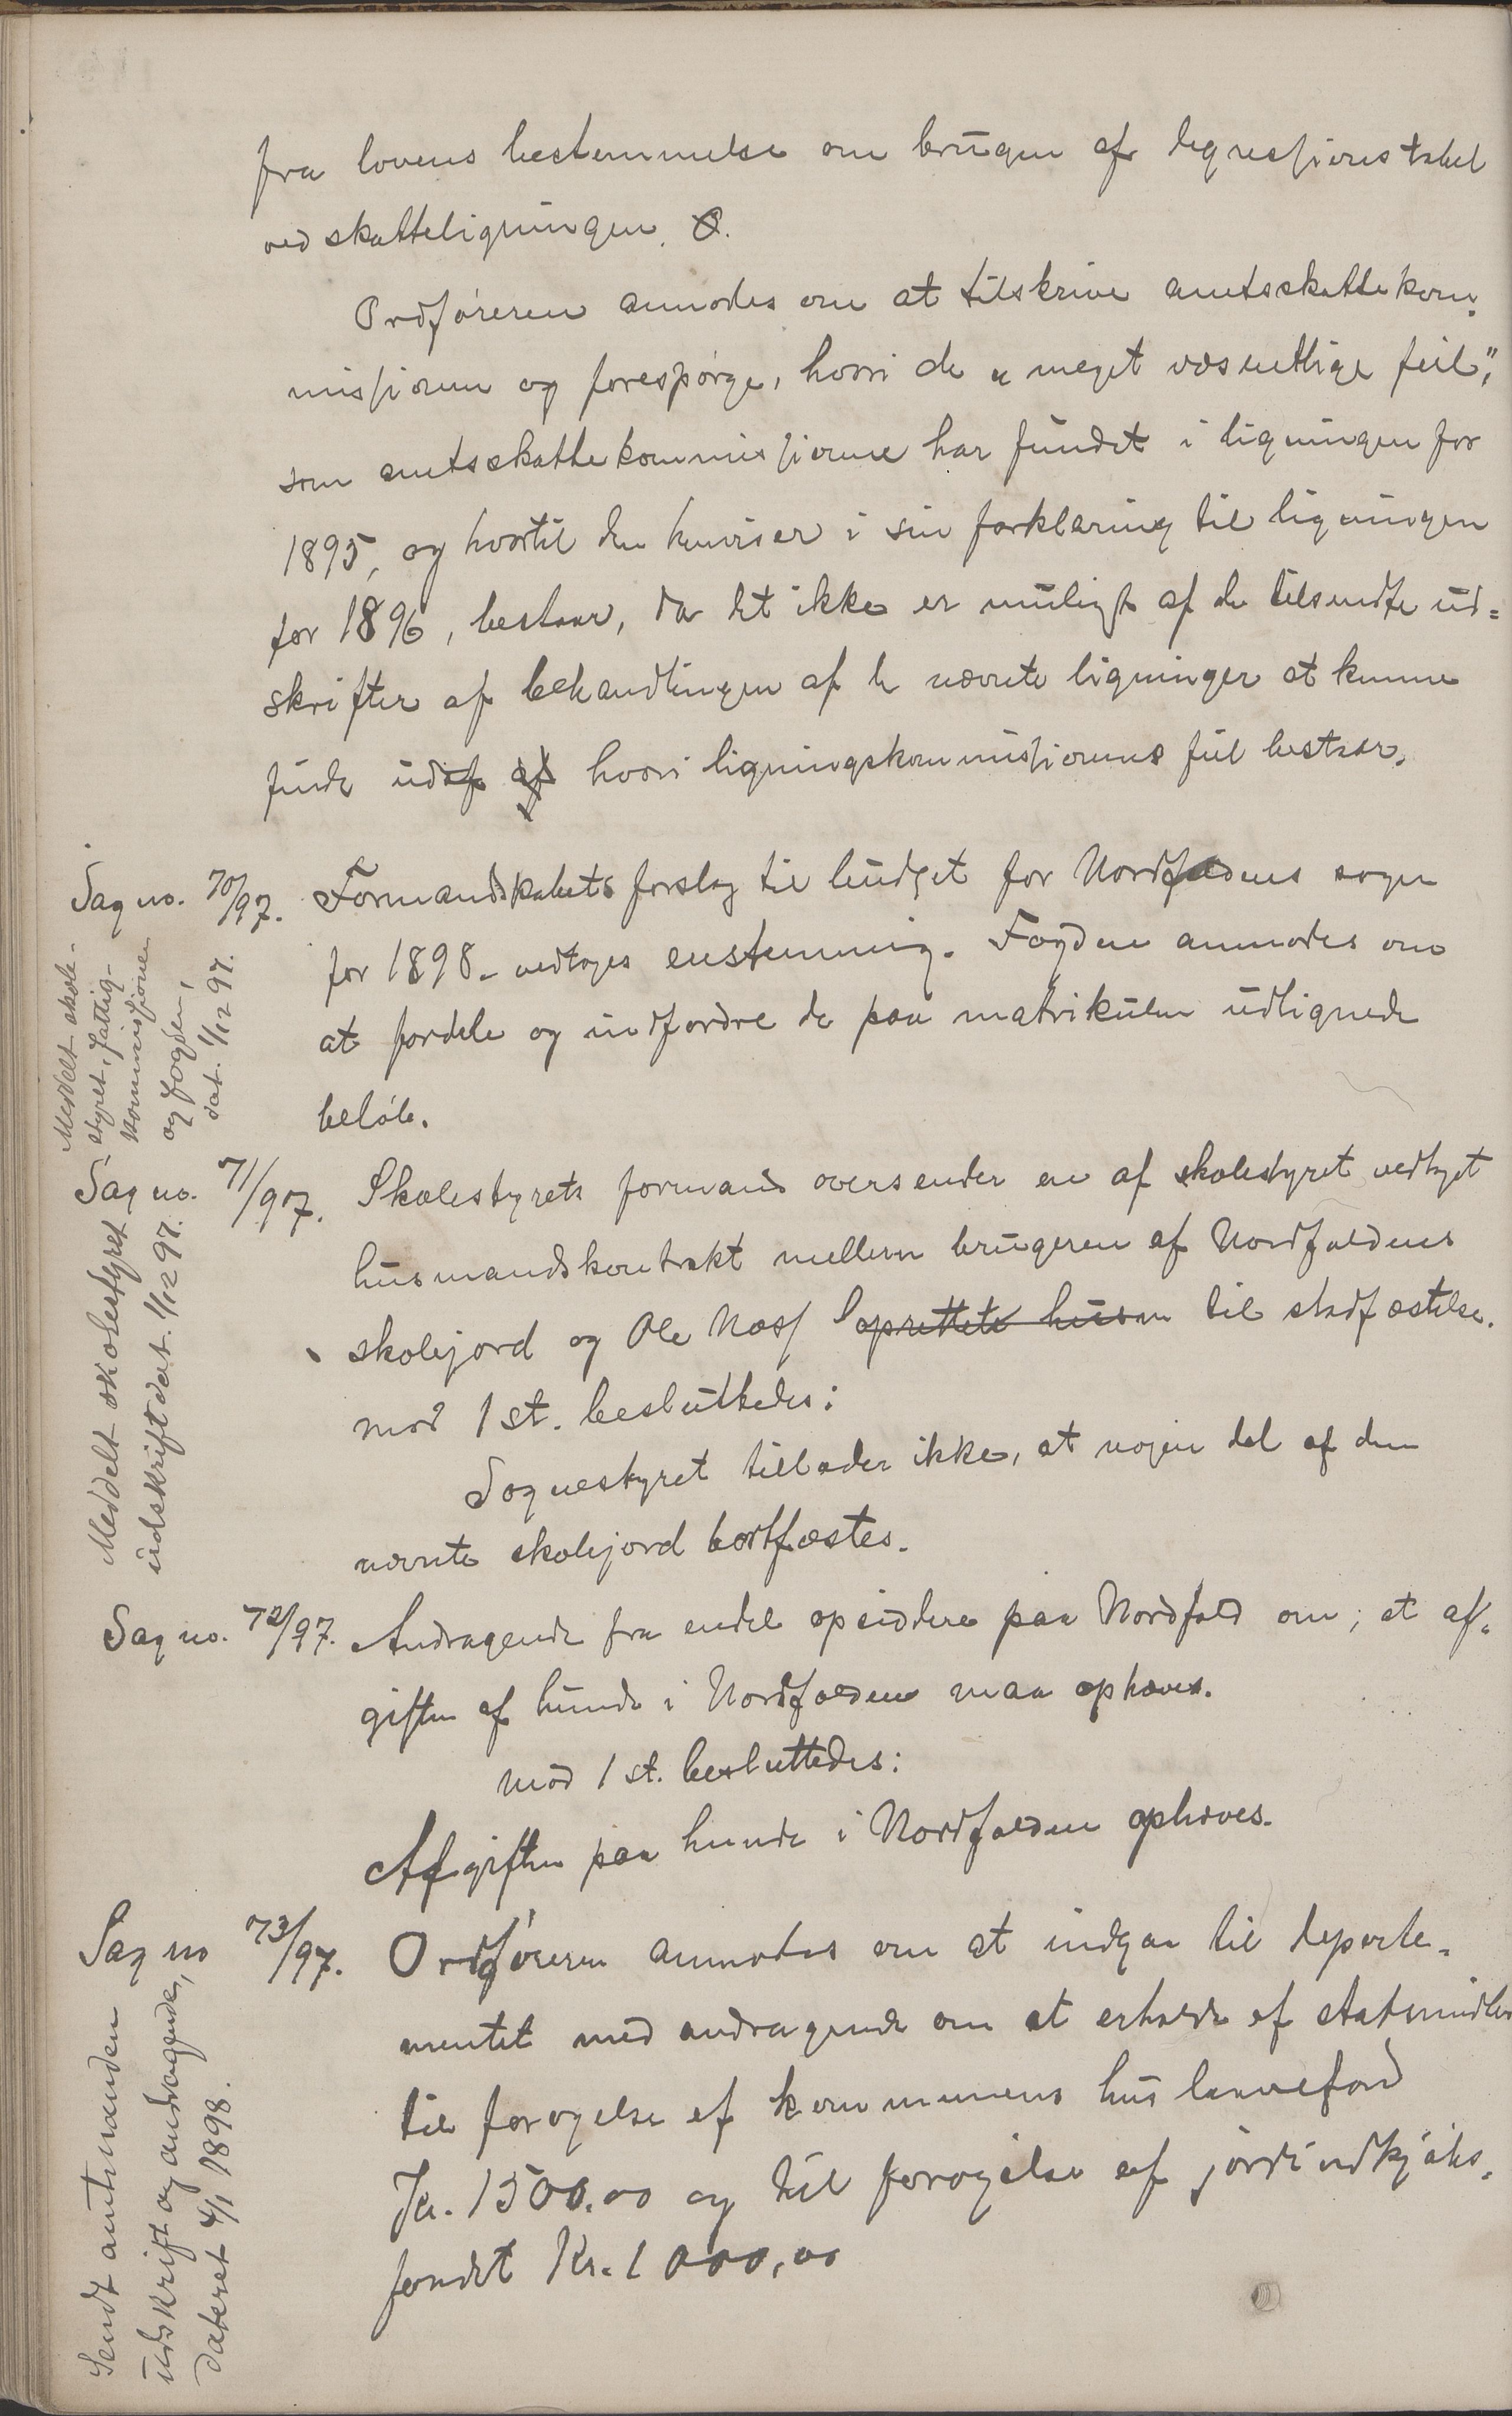 fra lovens bestemmelse om brugen af degressionstabel
ved skatteligningen.
Ordføreren anmodes om at tilskrive amtsskattekom-
missionen og forespørge, hvori de „meget væsentlige feil",
som amtsskattekommissionen har fundet i ligningen for
1895, og hvortil den henviser i sin forklaring til ligningen
for 1896, bestaar, da det ikke er muligt af de tilsendte ud=
skrifter af behandlingen af de nævnte ligninger at kunne
finde udaf af hvori ligningskommissionens feil bestaar.
Sag no. 70/97. Formandskabets forslag til budget for Nordfoldens sogn
for 1898 vedtoges enstemmig. Fogden anmodes om
at fordele og indfordre de paa matrikulen udlignede
beløb.
Meddelt skole-
styret, fattig-
kommissionen
og fogden,
dat. 1/12 97.
Sag no. 71/97. Skolestyrets formand oversender en af skolestyret vedtaget
husmandskontrakt mellem brugeren af Nordfoldens
skolejord og Ole Næss oprettete husm til stadfæstelse.
mod 1 st. besluttedes:
Sognestyret tillader ikke, at nogen del af den
nævnte skolejord bortfæstes.
Meddelt skolestyret
udskrift dat. 1/12 97.
Sag no. 72/97. Andragende fra endel opsiddere paa Nordfold om, at af-
giften af hunde i Nordfolden maa ophæves.
mod 1 st. besluttedes:
Afgiften paa hunde i Nordfolden ophæves.
Sag no 73/97. Ordføreren anmodes om at indgaa til departe-
mentet med andragende om at erholde af statsmidler
til forøgelse af kommunens huslaanefond
Kr. 1500.00 og til forøgelse af jordindkjøbs-
fondet Kr. 1000,00
Sendt amtmanden
udskrift og andragende,
dateret 4/1 1898.